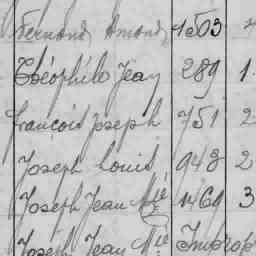 Fernand Amand 1503
Théophile Jean 289 1
François Joseph 751 2
Joseph Louis 948 2
Joseph Jean Mie 1469 3
Joseph Jean Mie Improp